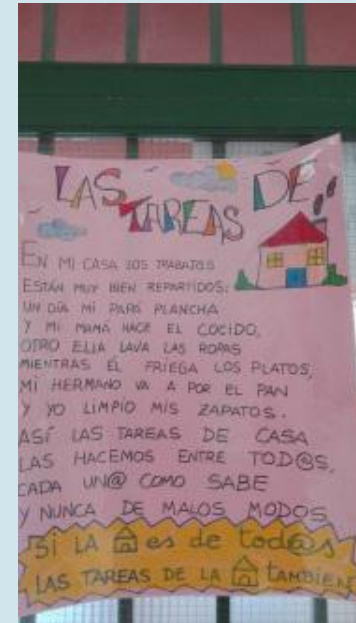 LAS TAREAS DE
EN MI CASA LOS TRABAJOS
ESTÁN MUY BIEN REPARTIDOS:
UN DÍA MI PAPÁ PLANCHA
Y MI MAMÁ HACE EL COCIDO,
OTRO ELLA LAVA LAS ROPAS
MIENTRAS ÉL FRIEGA LOS PLATOS,
MI HERMANO VA A POR EL PAN
Y YO LIMPIO MIS ZAPATOS.
ASÍ LAS TAREAS DE CASA
LAS HACEMOS ENTRE TOD@S,
CADA UN@ COMO SABE
Y NUNCA DE MALOS MODOS
SI LA es de tod@s
LAS TAREAS DE LA TAMBIÉN